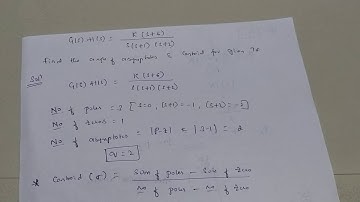 G(s) H(s) = K (s+6)
s(s+1) (s+2)
Find the angle of asymptotes & centroid for given
Sol)
G(s) H(s) = K (s+6)
s (s+1) (s+2)
No of poles = 3 [ s=0, (s+1) = -1, (s+2) =
No of zeros = 1
No of asymptotes = |P-Z| = |3-1| = 2
q = 2
* Centroid (σ) = Sum of poles - Sum of zeros
No of poles - No of zeros